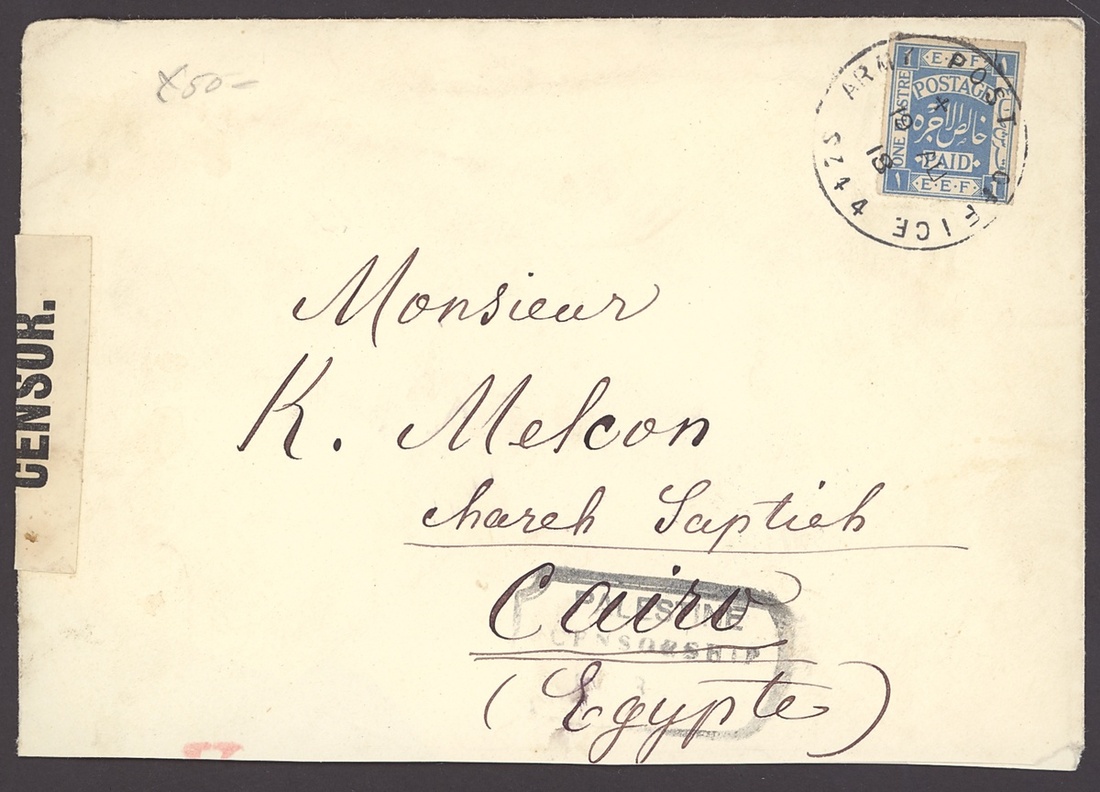 X50-
ARMY POST OFFICE 44 SZ
X
19 AU
18
1 E·E·F 1
POSTAGE
خالص الاجره
PAID
ONE PIASTRE
١ E·E·F 1
CENSOR.
Monsieur
K. Melcon
chareh Saptieh
Cairo
(Egypte)
PALESTINE
CENSORSHIP